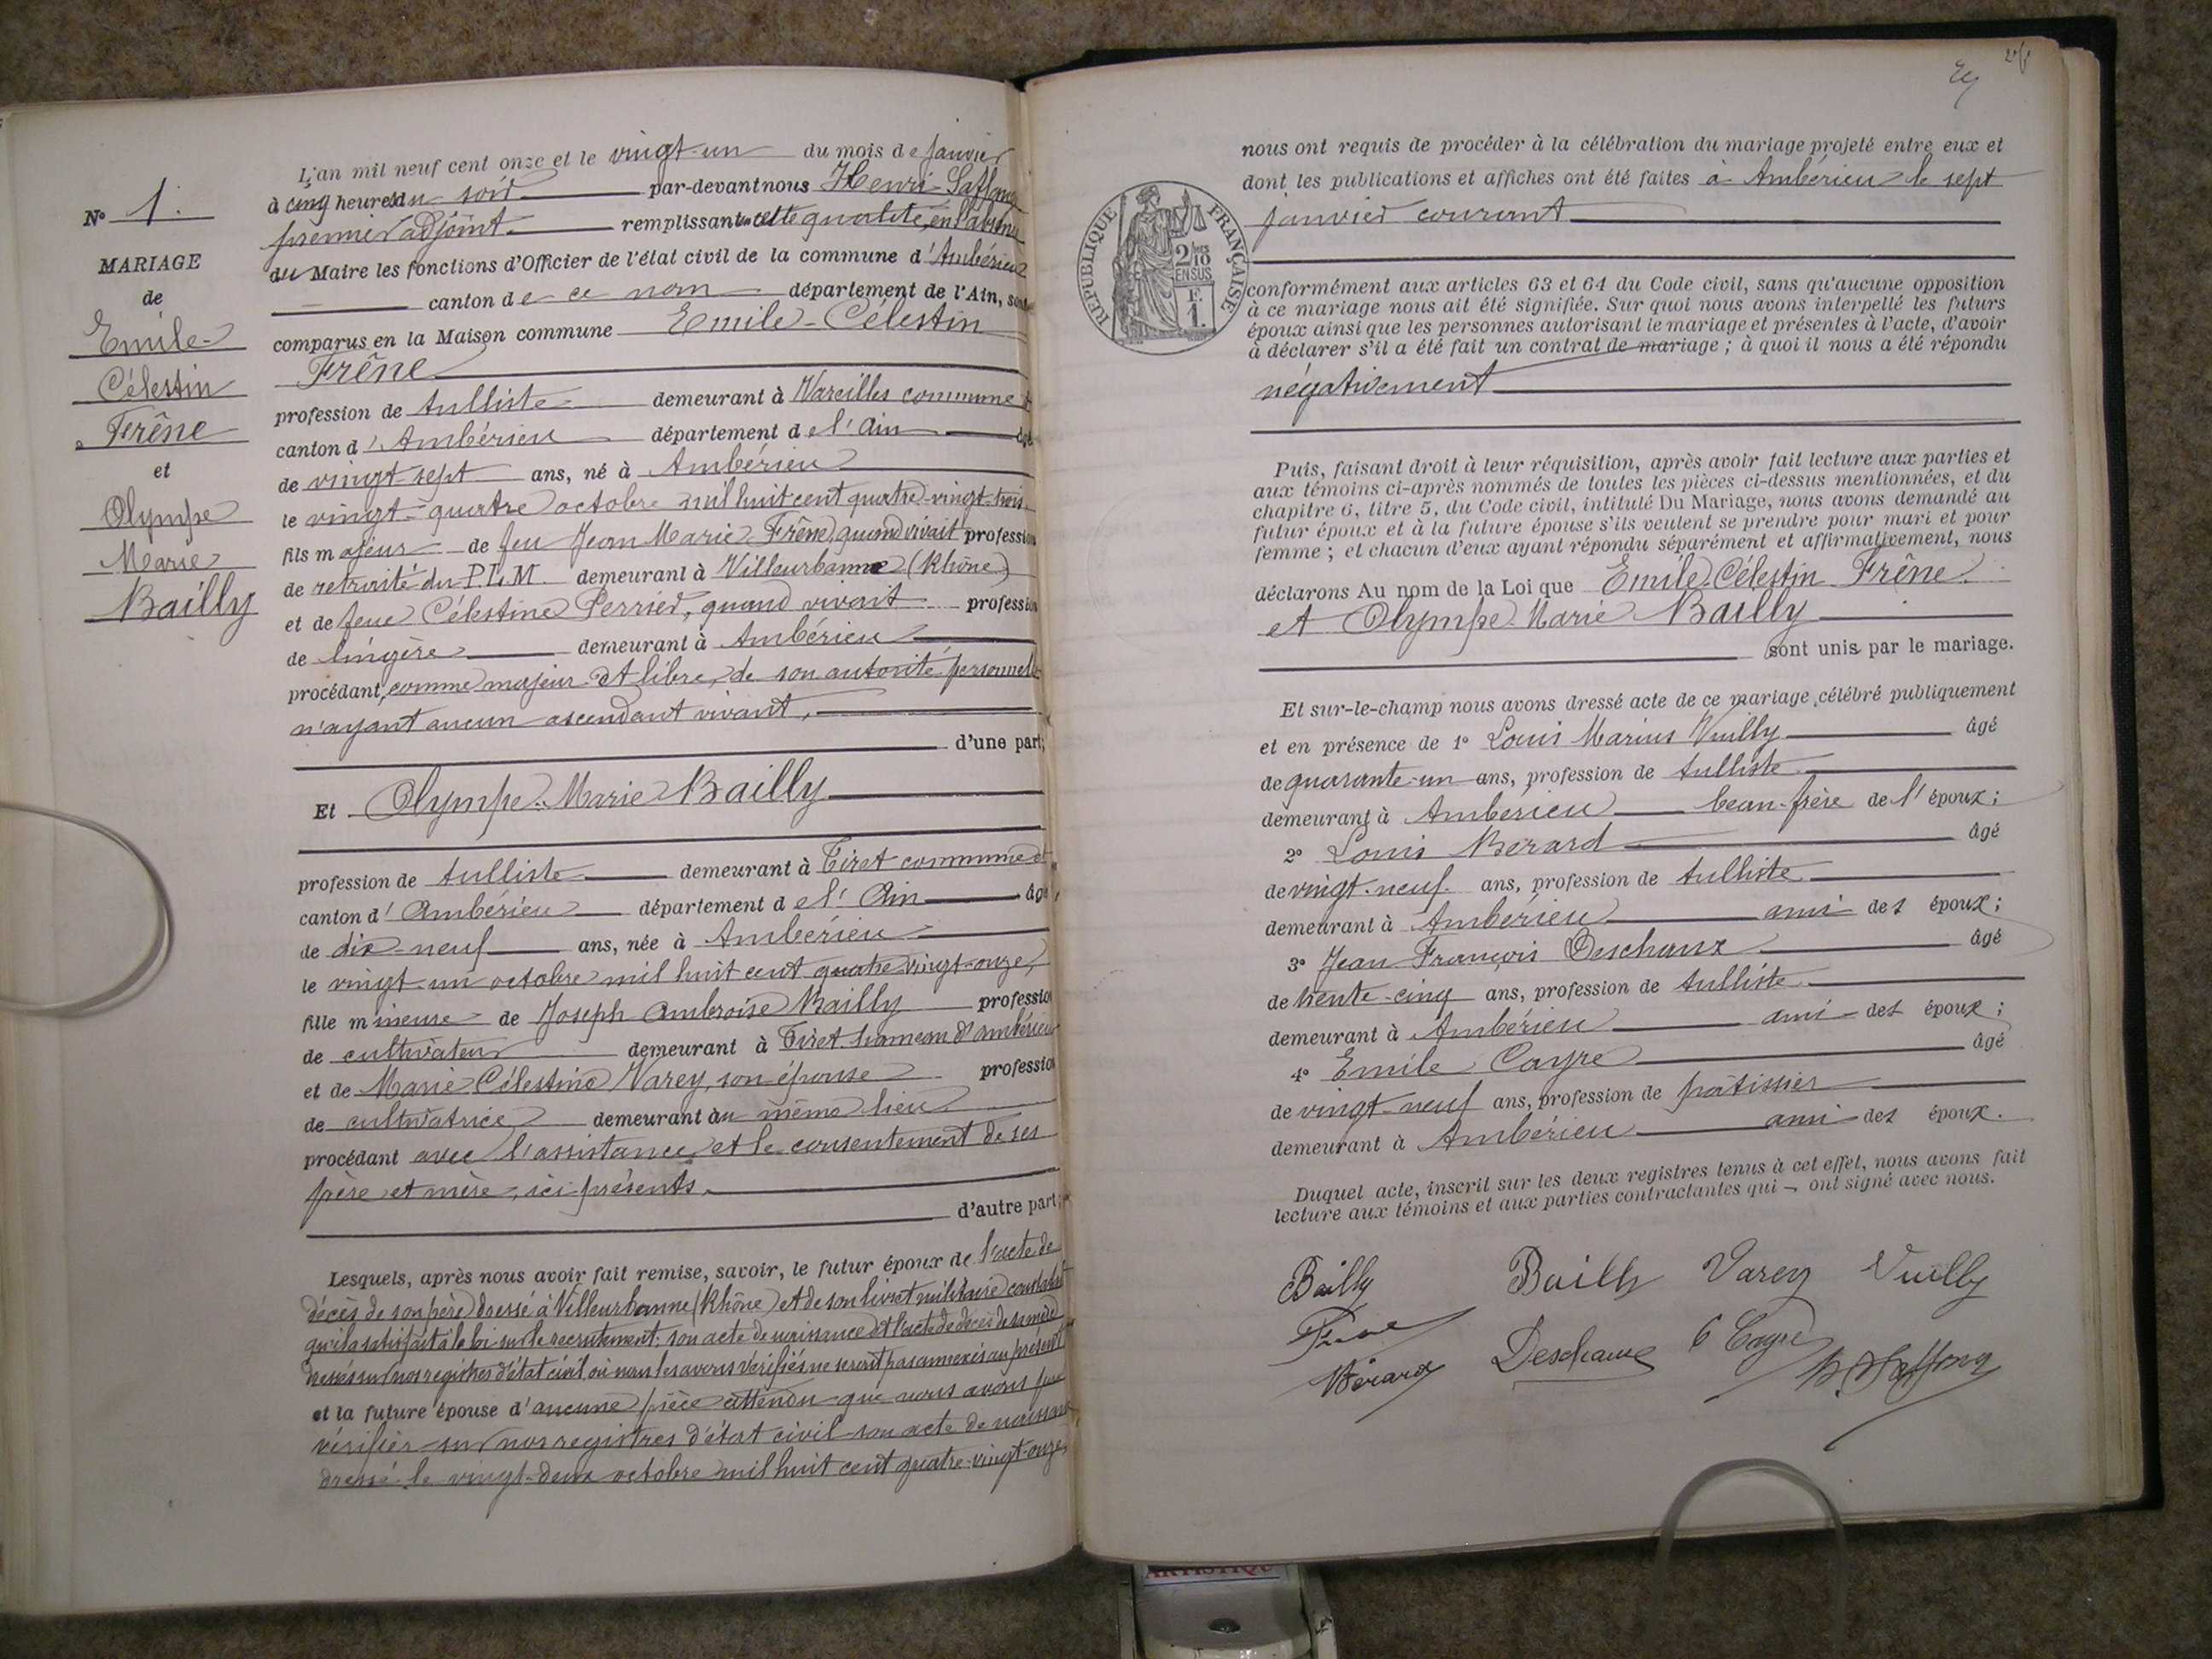 N° 1.
MARIAGE
de
Emile-
Célestin
Frêne
et
Olympe
Marie
Bailly
L'an mil neuf cent onze et le vingt-un du mois de janvier
à cinq heures du soir par-devant nous Henri
premier adjoint remplissant en cette qualité, en l'absence
du Maire les fonctions d'Officier de l'état civil de la commune d'Ambérieu
canton de ce nom département de l'Ain, sont
comparus en la Maison commune Emile-Célestin
Frêne
profession de tulliste demeurant à Vareilles commune et
canton d'Ambérieu département de l'Ain âgé
de vingt-sept ans, né à Ambérieu
le vingt-quatre octobre mil huit cent quatre-vingt-trois
fils majeur de feu Jean Marie Frêne, quand vivait profession
de retraité du P.L.M. demeurant à Villeurbanne (Rhône)
et de feue Célestine Perrier, quand vivait profession
de lingère demeurant à Ambérieu
procédant, comme majeur et libre, de son autorité personnelle
n'ayant aucun ascendant vivant,
d'une part;
Et Olympe-Marie Bailly
profession de tulliste demeurant à Tiret commune et
canton d'Ambérieu département de l'Ain âgé
de dix-neuf ans, née à Ambérieu
le vingt-un octobre mil huit cent quatre vingt-onze,
fille mineure de Joseph Ambroise Bailly profession
de cultivateur demeurant à Tiret d'Ambérieu
et de Marie Célestine Varey, son épouse profession
de cultivatrice demeurant au même lieu
procédant avec l'assistance et le consentement de ses
père et mère, ici présents.
d'autre part;
Lesquels, après nous avoir fait remise, savoir, le futur époux de l'acte de
décès de son père dressé à Villeurbanne (Rhône) et de son livret militaire constatant
qu'il a satisfait à la loi sur le recrutement, son acte de naissance et l'acte de décès de sa mère
dressés sur nos registres d'état civil où nous les avons vérifiés ne seront pas annexés au présent
et la future épouse d'aucune pièce attendu que nous avons pu
vérifier sur nos registres d'état civil son acte de naissance
dressé le vingt-deux octobre mil huit cent quatre-vingt-onze,
nous ont requis de procéder à la célébration du mariage projeté entre eux et
dont les publications et affiches ont été faites à Ambérieu le sept
janvier courant
RÉPUBLIQUE FRANÇAISE
2/10
EN SUS
F.
1.
conformément aux articles 63 et 64 du Code civil, sans qu'aucune opposition
à ce mariage nous ait été signifiée. Sur quoi nous avons interpellé les futurs
époux ainsi que les personnes autorisant le mariage et présentes à l'acte, d'avoir
à déclarer s'il a été fait un contrat de mariage; à quoi il nous a été répondu
négativement
Puis, faisant droit à leur réquisition, après avoir fait lecture aux parties et
aux témoins ci-après nommés de toutes les pièces ci-dessus mentionnées, et du
chapitre 6, titre 5, du Code civil, intitulé Du Mariage, nous avons demandé au
futur époux et à la future épouse s'ils veulent se prendre pour mari et pour
femme; et chacun d'eux ayant répondu séparément et affirmativement, nous
déclarons Au nom de la Loi que Emile Célestin Frêne
et Olympe Marie Bailly
sont unis par le mariage.
Et sur-le-champ nous avons dressé acte de ce mariage, célébré publiquement
et en présence de 1° Louis Marius Vuilly âgé
de quarante-un ans, profession de tulliste
demeurant à Ambérieu beau-frère de l'époux;
2° Louis Bérard âgé
de vingt-neuf ans, profession de tulliste
demeurant à Ambérieu ami des époux;
3° Jean François Deschaux âgé
de trente-cinq ans, profession de tulliste
demeurant à Ambérieu ami des époux;
4° Emile Cayre âgé
de vingt-neuf ans, profession de pâtissier
demeurant à Ambérieu ami des époux.
Duquel acte, inscrit sur les deux registres tenus à cet effet, nous avons fait
lecture aux témoins et aux parties contractantes qui ont signé avec nous.
Bailly Bailly Varey Vuilly
Frene Deschaux E Cayre
Bérard
ARTISTIQUE